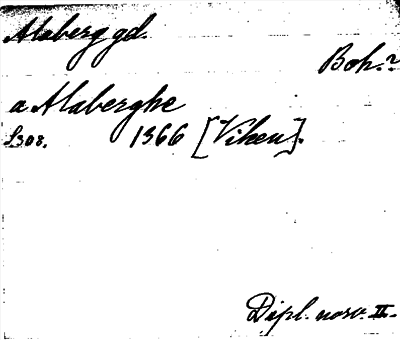 Alaberg gd.
Boh.?
a Alaberghe
S308. 1366 [Viken].
Dipl. norv. II.